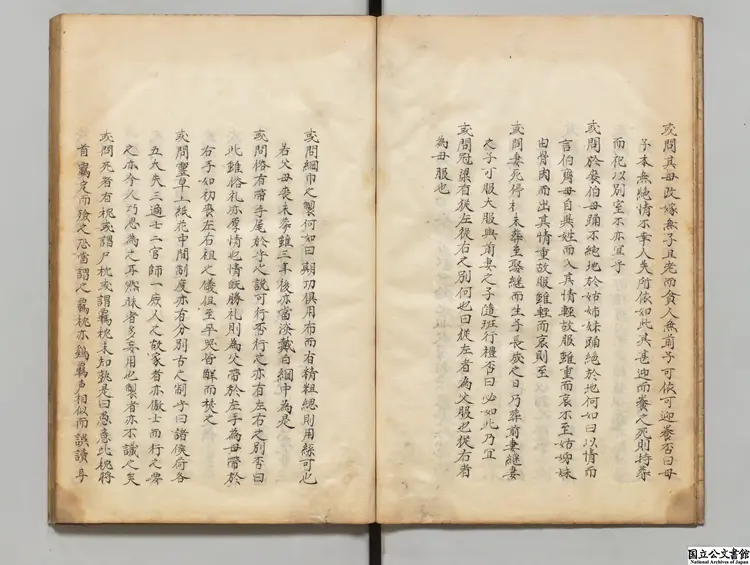 或問其母改嫁無子且老而貧人無前子可依可迎養否曰母
子本無絶情不幸人失所依如此其甚迎而養之死則持喪
而祀以別室不亦宜乎
或問於喪伯母踊不絶地於姑姉妹踊絶於地何如曰以情而
言伯母自異姓而入其情輕故服雖重而哀不至姑姉妹
由骨肉而出其情重故服雖輕而哀則至
或問妻死停柩未葬至娶継而生子長成之日乃葬前妻継妻
之子可服大服與前妻之子隨班行禮否曰必如此乃宜
或問冠梁有從左從右之別何也曰從左者為父服也從右者
為母服也
或問綱巾之製何如曰期功俱用布而有精粗緦則用絲可也
若父母喪未葬雖三年後亦當深戴白綱巾為是
或問俗有帶手尾於手之説可行否行之亦有左右之別否曰
此雖俗礼亦厚情也情既勝礼則為父帶於左手為母帶於
右手如初喪左右袒之儀但至卒哭皆觧而焚之
或問靈草上紙花中間制度亦有分別古之制乎曰諸侯荷各
五大夫三適士二官師一庻人之家者亦倣士而行之
之本今人巧思為之耳然昧者多妄用也製者亦不識之矣
或問死者有枕或謂尸枕或謂羈枕未知孰是曰愚意此枕將
首羈定而殮之恐當謂之羈枕亦鷄羈声相似而誤讀耳
国立公文書館
National Archives of Japan